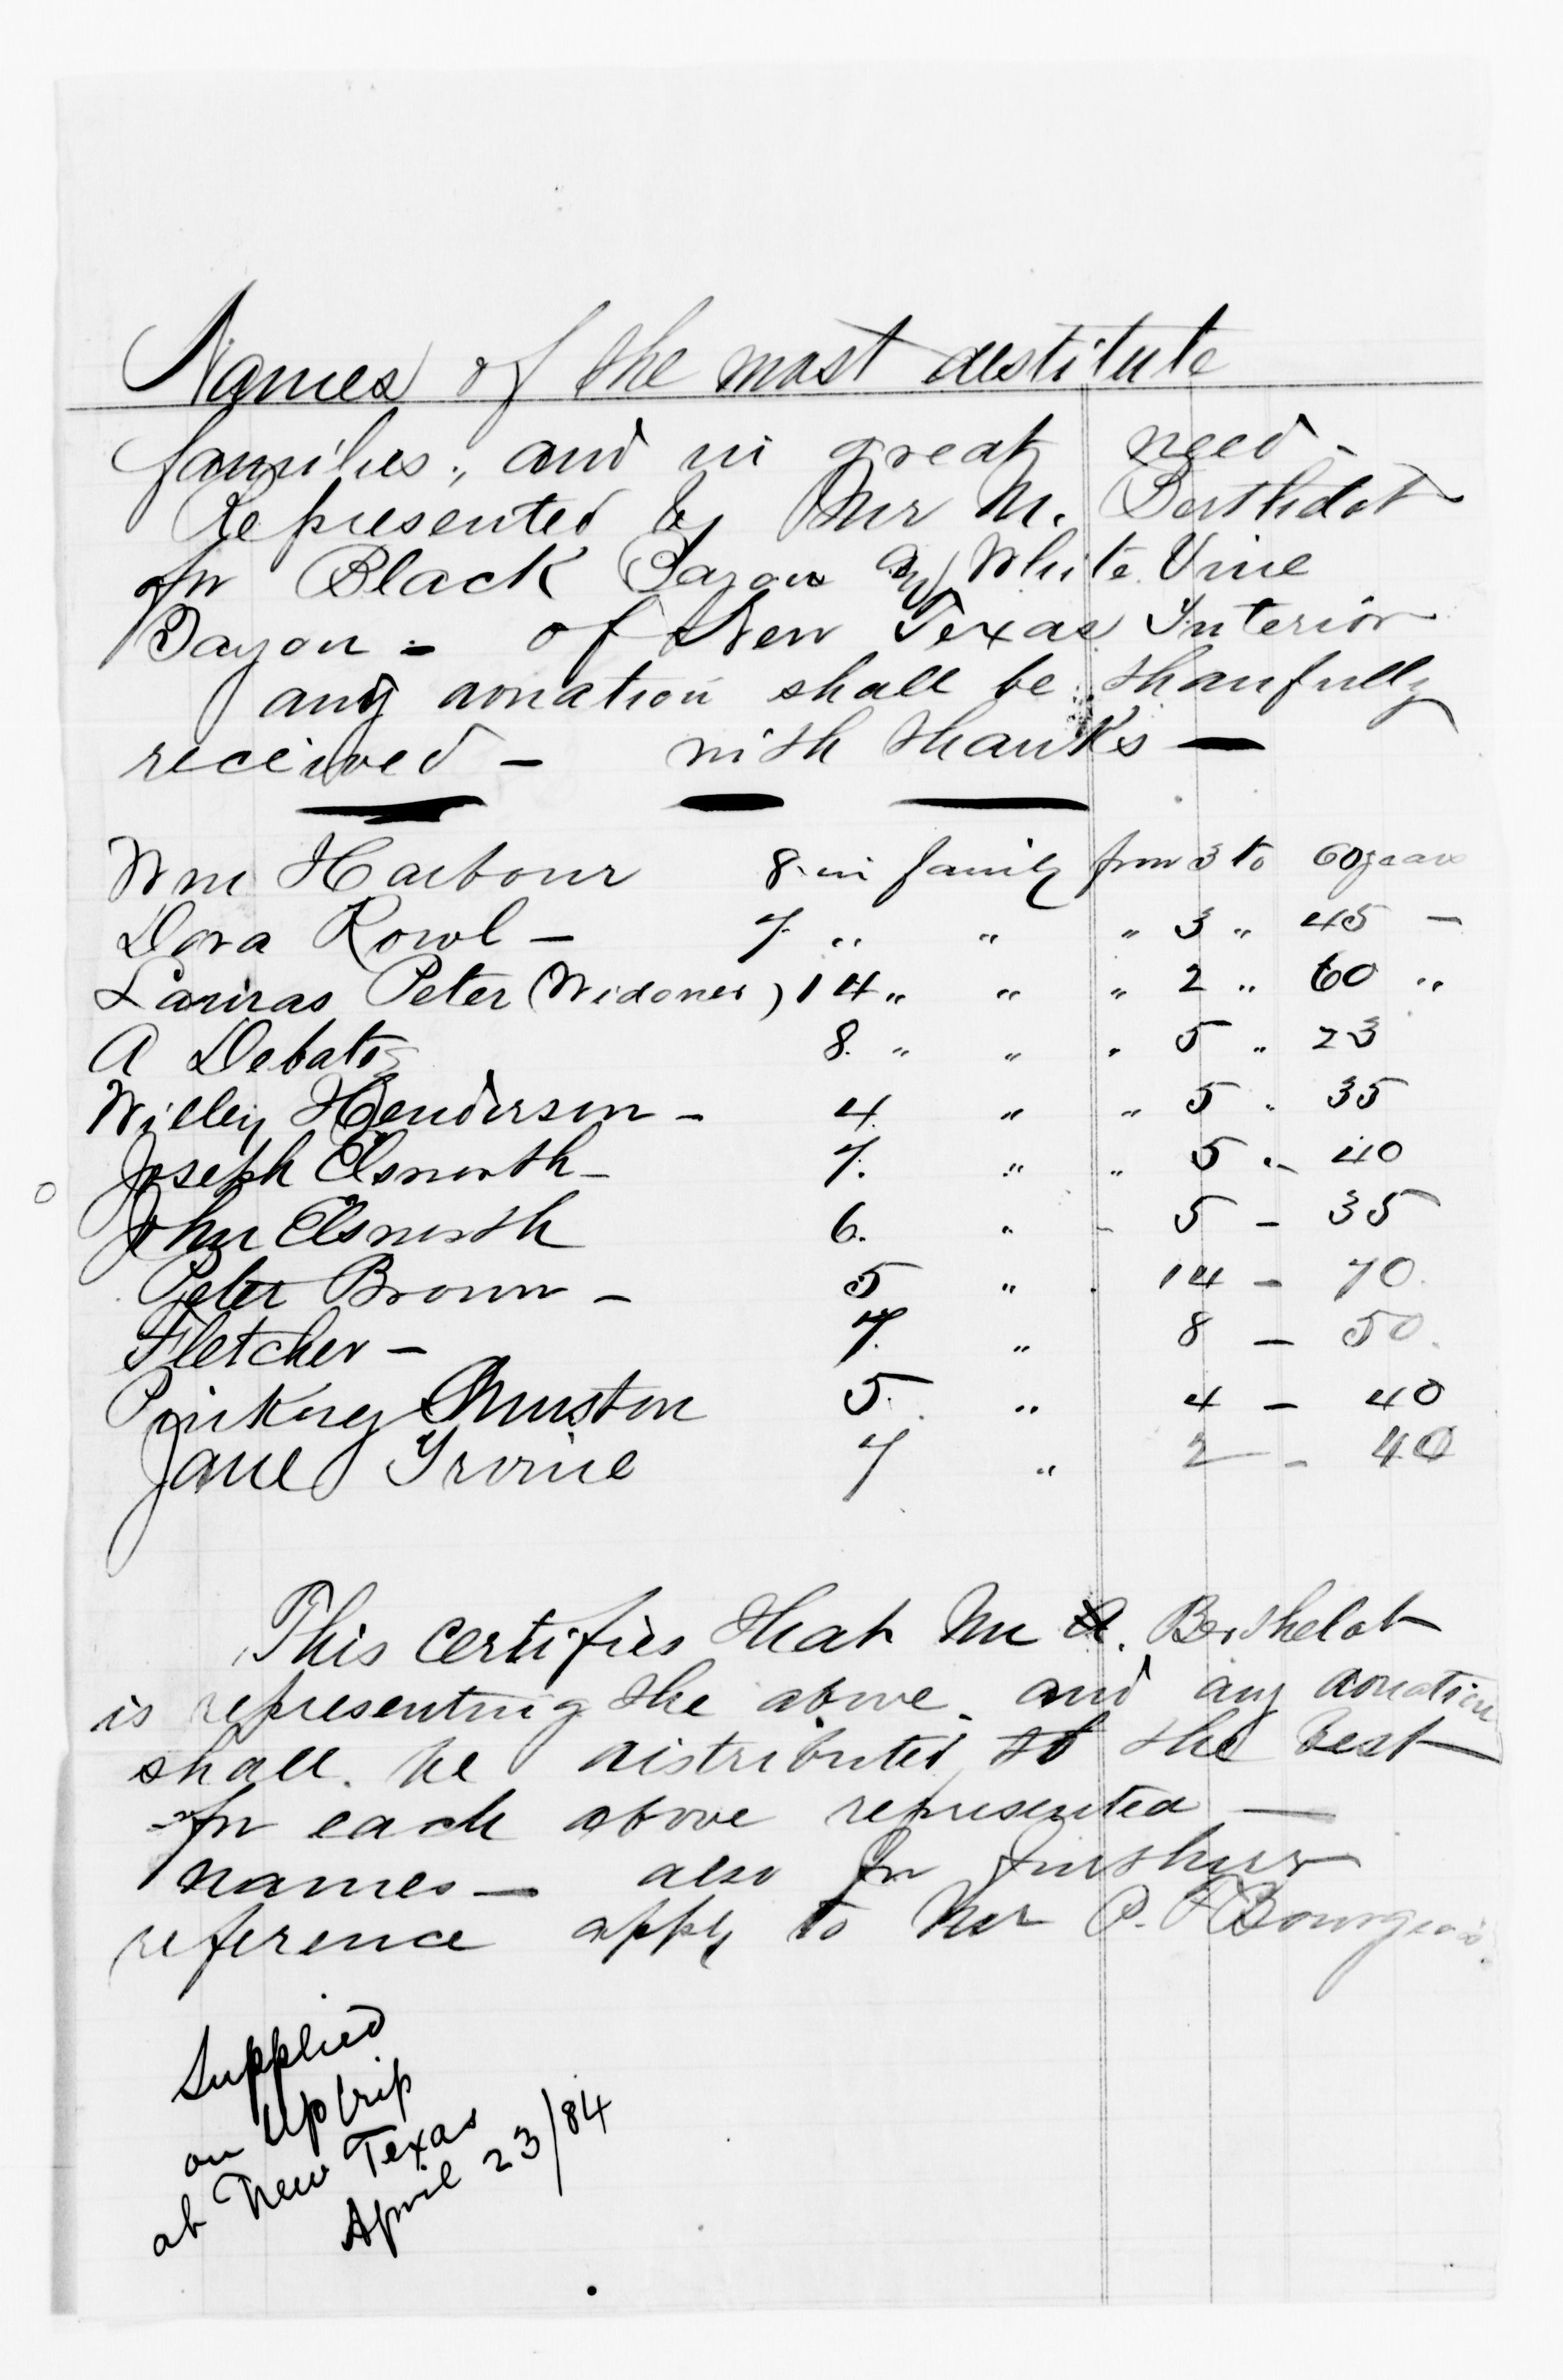 Names of the most destitute
families, and in great need -
Represented by Mr M. Berthelot
for Black Bayou and White Vine
Bayou - of New Texas Interior
any donation shall be thankfully
received - with thanks -
Wm Harbour 8 in family from 3 to 60 years
Dora Rowl - 7. " " " 3 " 45 -
Peter (Widower) 14 " " " 2 " 60 "
A Debats 8. " " " 5 " 23
Willey Henderson - 4. " " 5 " 35
Joseph Elsworth - 7. " " 5 " 40
John Elsworth 6. " - 5 - 35
Peter Brown - 5 " " 14 - 70.
Fletcher - 7. " 8 - 50.
Pinkney 5. " 4 - 40
Jane Irvine 7 " 2 - 40
This certifies that Mr A. Berthelot
is representing the above. and any donation
shall be distributed to the best
for each above represented -
names - also for further
reference apply to Mr P. F Bourgeois.
Supplied
on Up trip
at New Texas
April 23/84